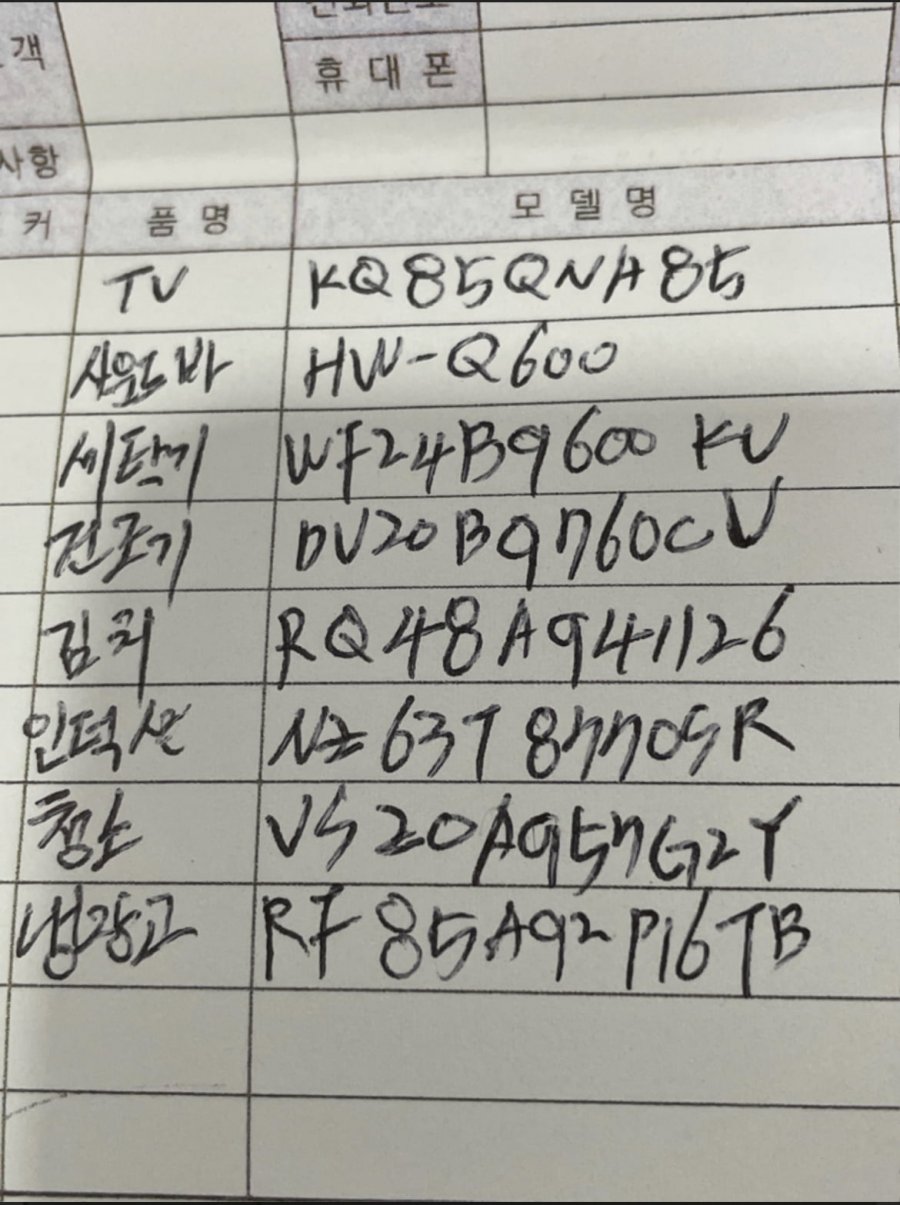 객
휴대폰
사항
커 품명 모델명
TV KQ85QNA85
사운드바 HW-Q600
세탁기 WF24B9600KV
건조기 DV20B9760CV
김치 RQ48A941126
인덕션 NZ63T8770SR
청소 VS20A957G2Y
냉장고 RF85A92P16TB